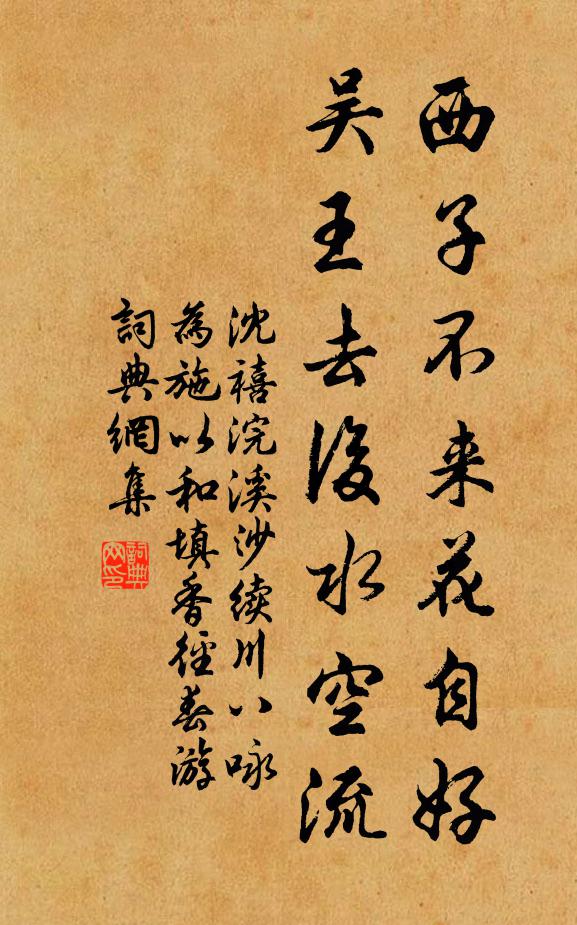 西子不来花自好
吴王去後水空流
沈禧浣溪沙续川八咏
為施以和填香径春游
詞典網集
詞典网印